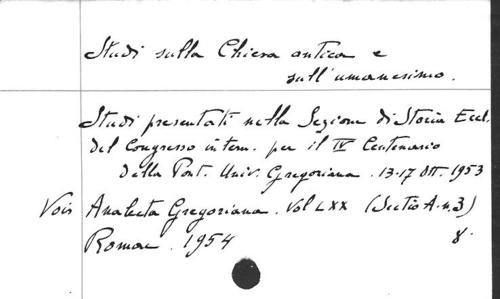 Studi sulla Chiesa antica e
sull'umanesimo.
Studi presentati nella Sezione di Storia Eccl.
del Congresso intern. per il IV Centenario
della Pont. Univ. Gregoriana. 13-17 Ott. 1953
Vois Analecta Gregoriana. Vol LXX (Sectio A.n.3)
Romae. 1954 8.